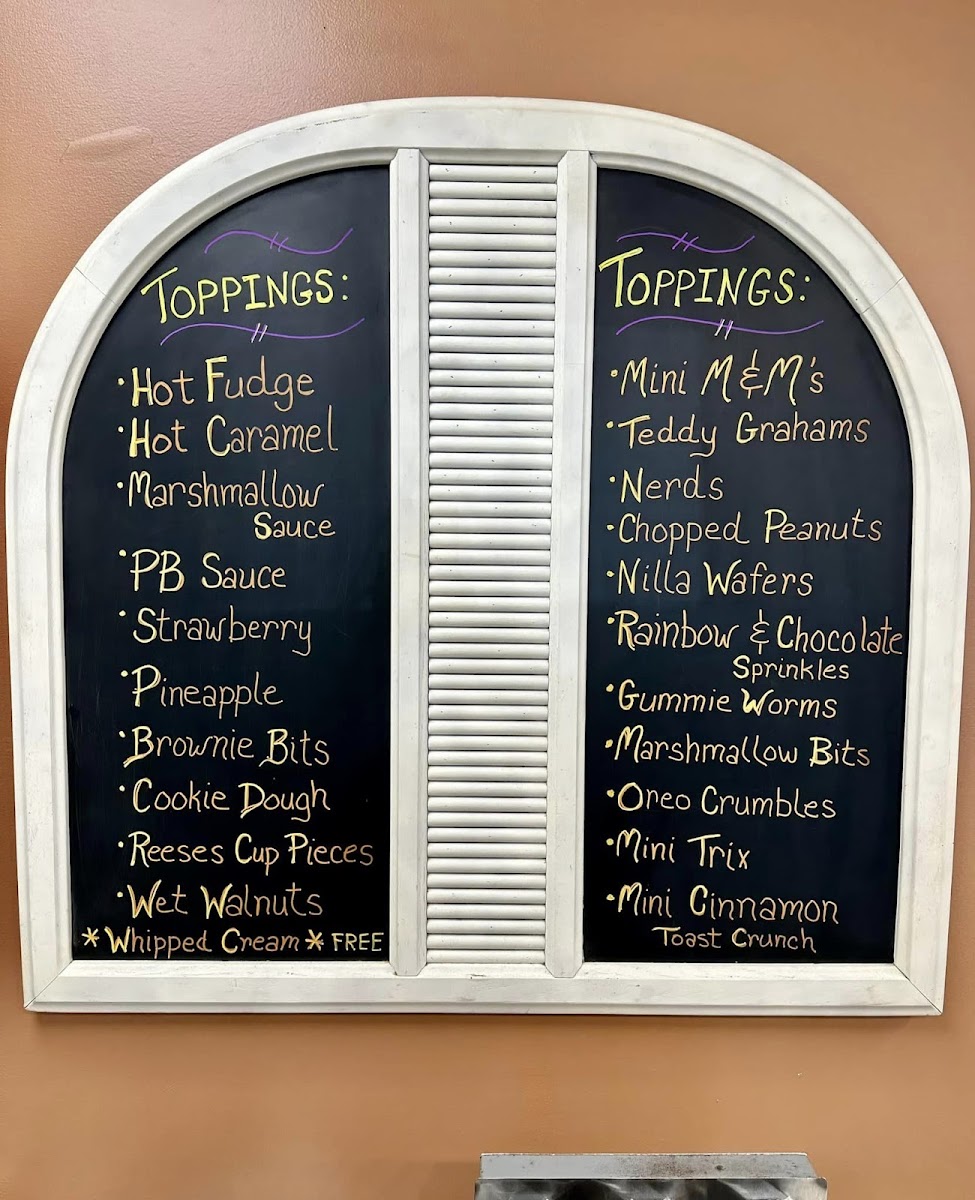 TOPPINGS:
·Hot Fudge
·Hot Caramel
·Marshmallow
Sauce
·PB Sauce
·Strawberry
·Pineapple
·Brownie Bits
·Cookie Dough
·Reeses Cup Pieces
·Wet Walnuts
*Whipped Cream* FREE
TOPPINGS:
·Mini M&M's
·Teddy Grahams
·Nerds
·Chopped Peanuts
·Nilla Wafers
·Rainbow & Chocolate
Sprinkles
·Gummie Worms
·Marshmallow Bits
·Oreo Crumbles
·Mini Trix
·Mini Cinnamon
Toast Crunch